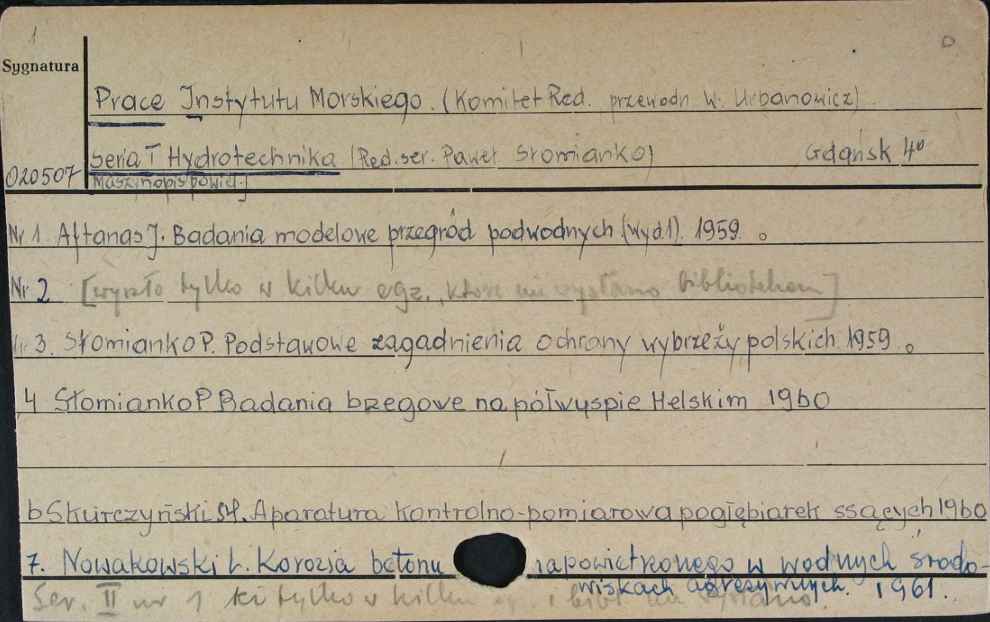 1
Sygnatura
Prace Instytutu Morskiego. (Komitet Red. przewodn W. Urbanowicz)
Seria I Hydrotechnika (Red. ser. Paweł Słomianko) Gdańsk 4°
020507 Maszynopis powiel.]
Nr 1. Aftanas J. Badania modelowe przegród podwodnych (wyd 1). 1959.
Nr 2 [wyszło tylko w kilku egz., które nie wysłano bibliotekom]
Nr 3. Słomianko P. Podstawowe zagadnienia ochrony wybrzeży polskich. 1959.
4 Słomianko P Badania brzegowe na półwyspie Helskim 1960
6 Skurczyński St. Aparatura kontrolno-pomiarowa pogłębiarek ssących 1960
7. Nowakowski L. Korozja betonu napowietrzonego w wodnych środo-
wiskach agresywnych. 1961.
Ser. II nr 1 tylko w kilku